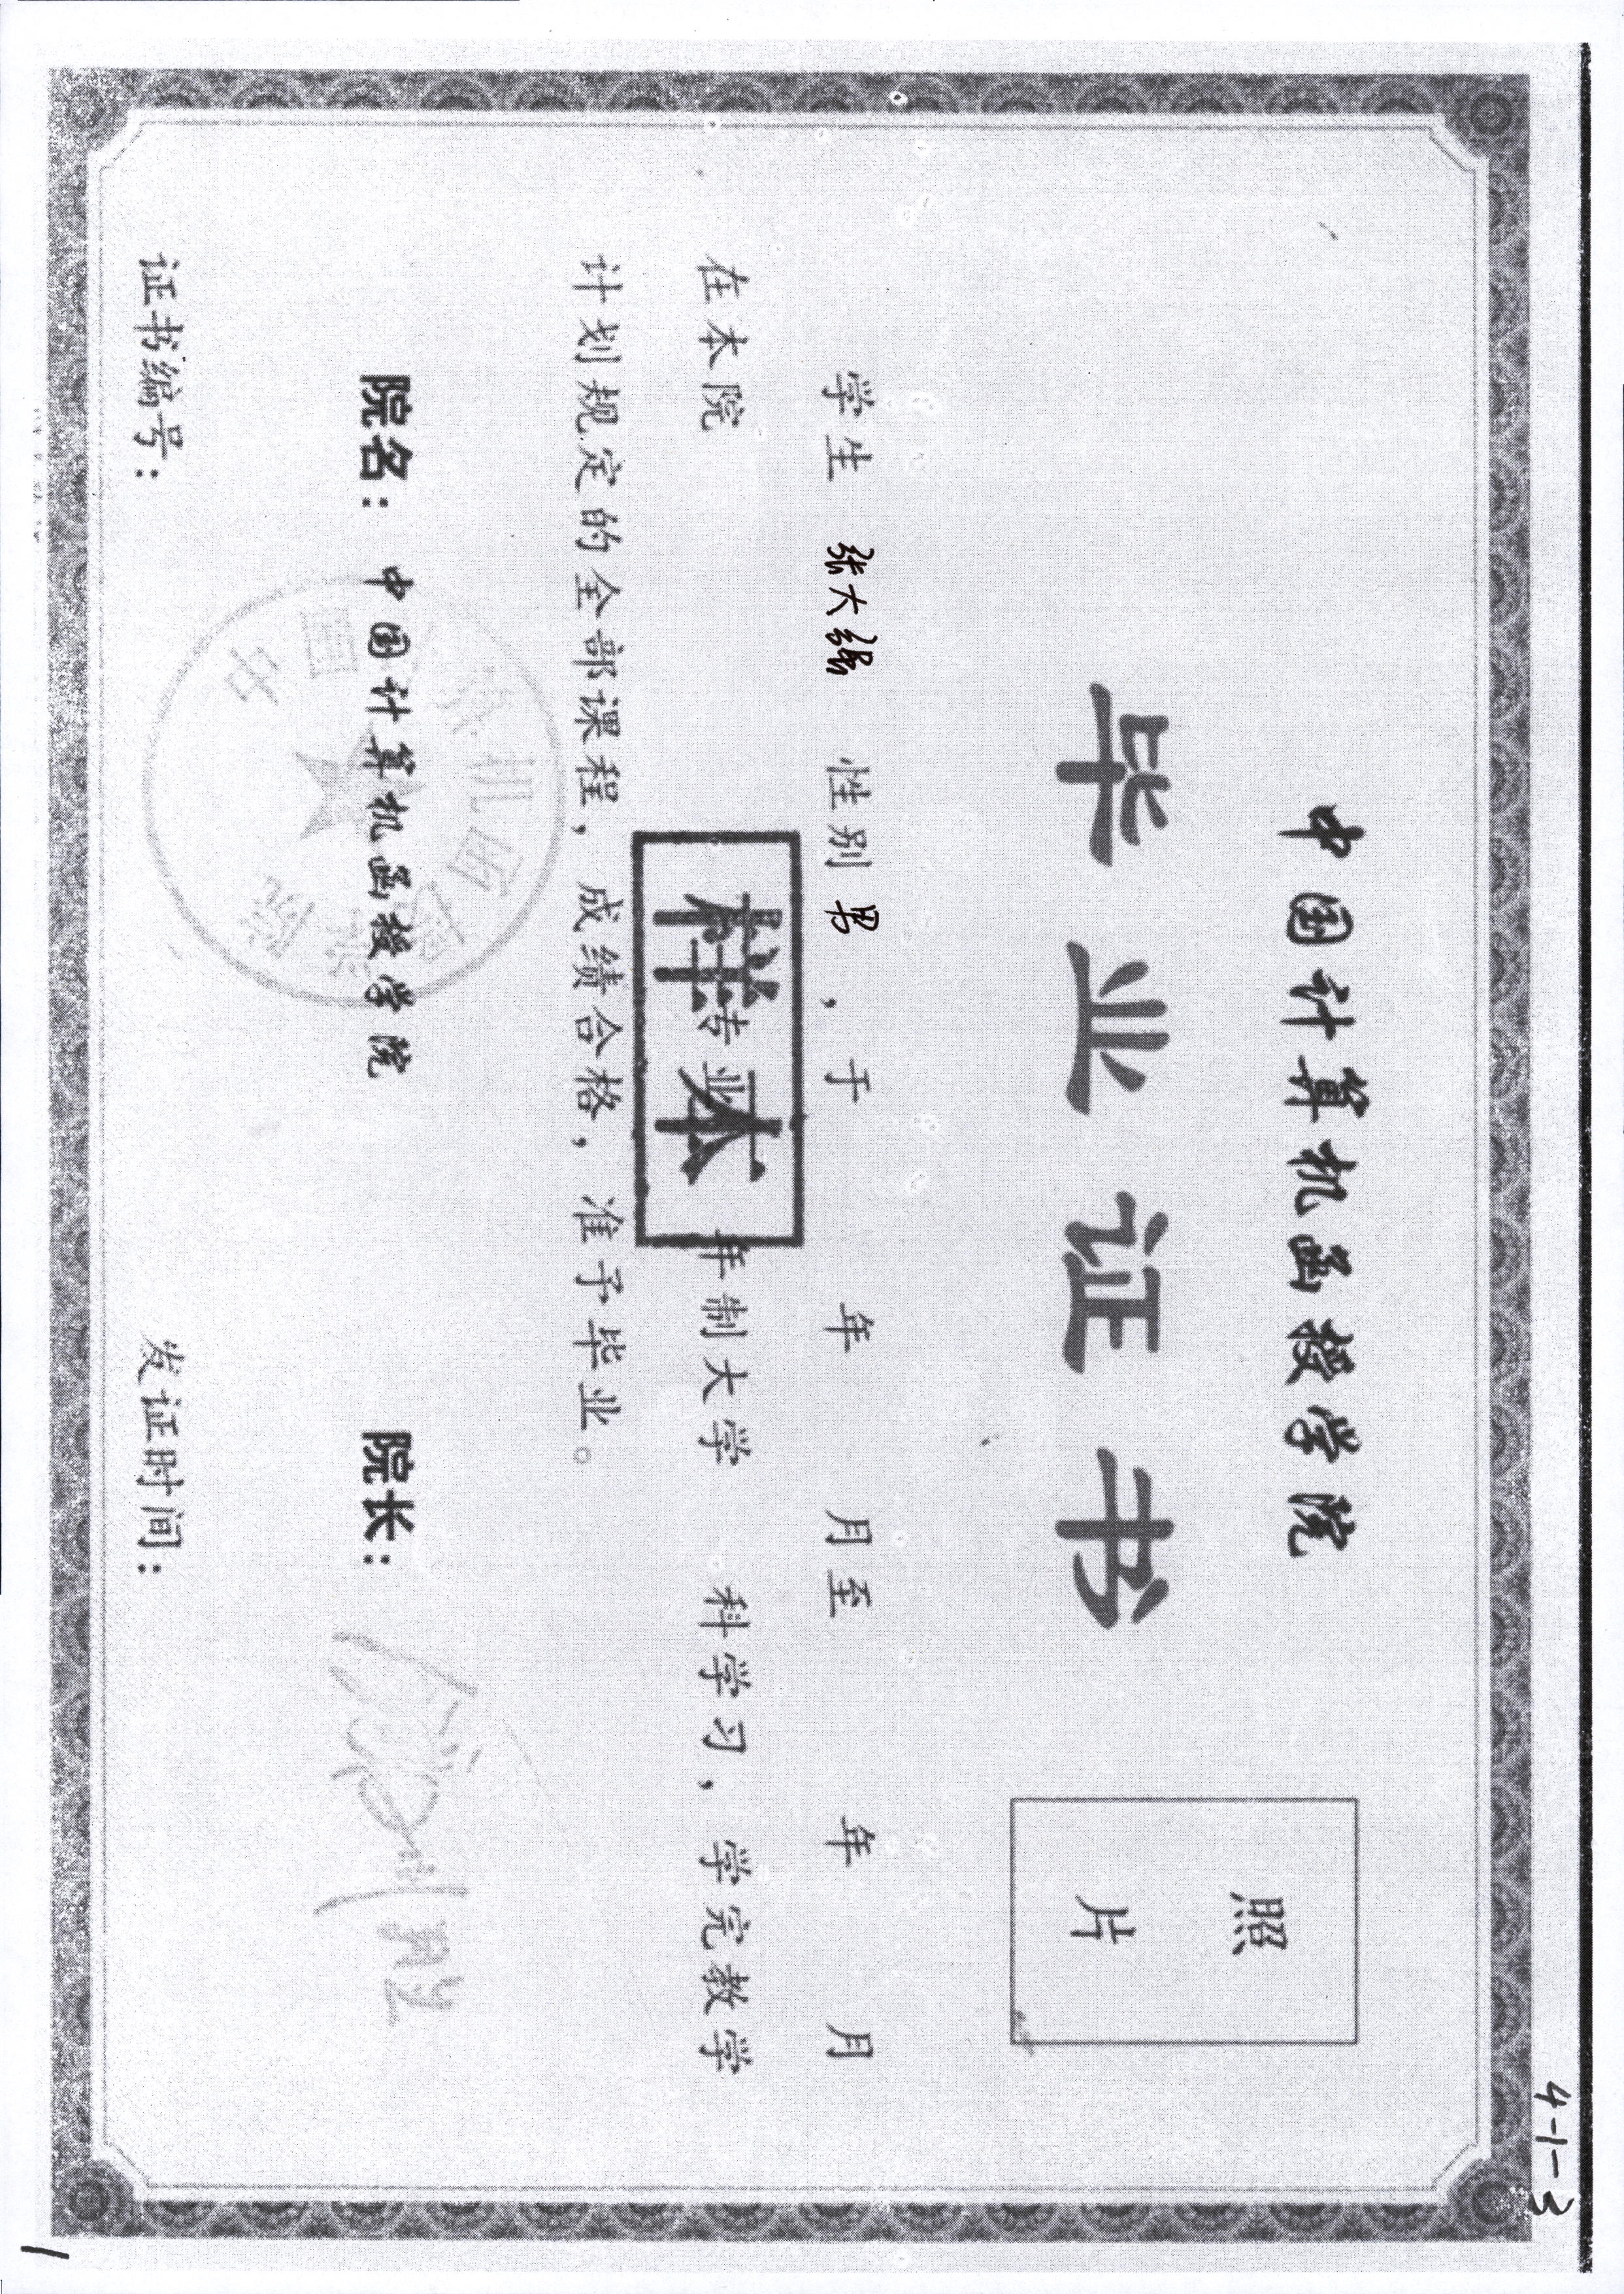 4-1-3
中国计算机函授学院
照片
毕业证书
学生 张大强 性别 男 ，于 年 月至 年 月
样本
在本院 专业 年制大学 科学习，学完教学
计划规定的全部课程，成绩合格，准予毕业。
中国计算机函授学院
院名：中国计算机函授学院 院长：
证书编号： 发证时间：
1